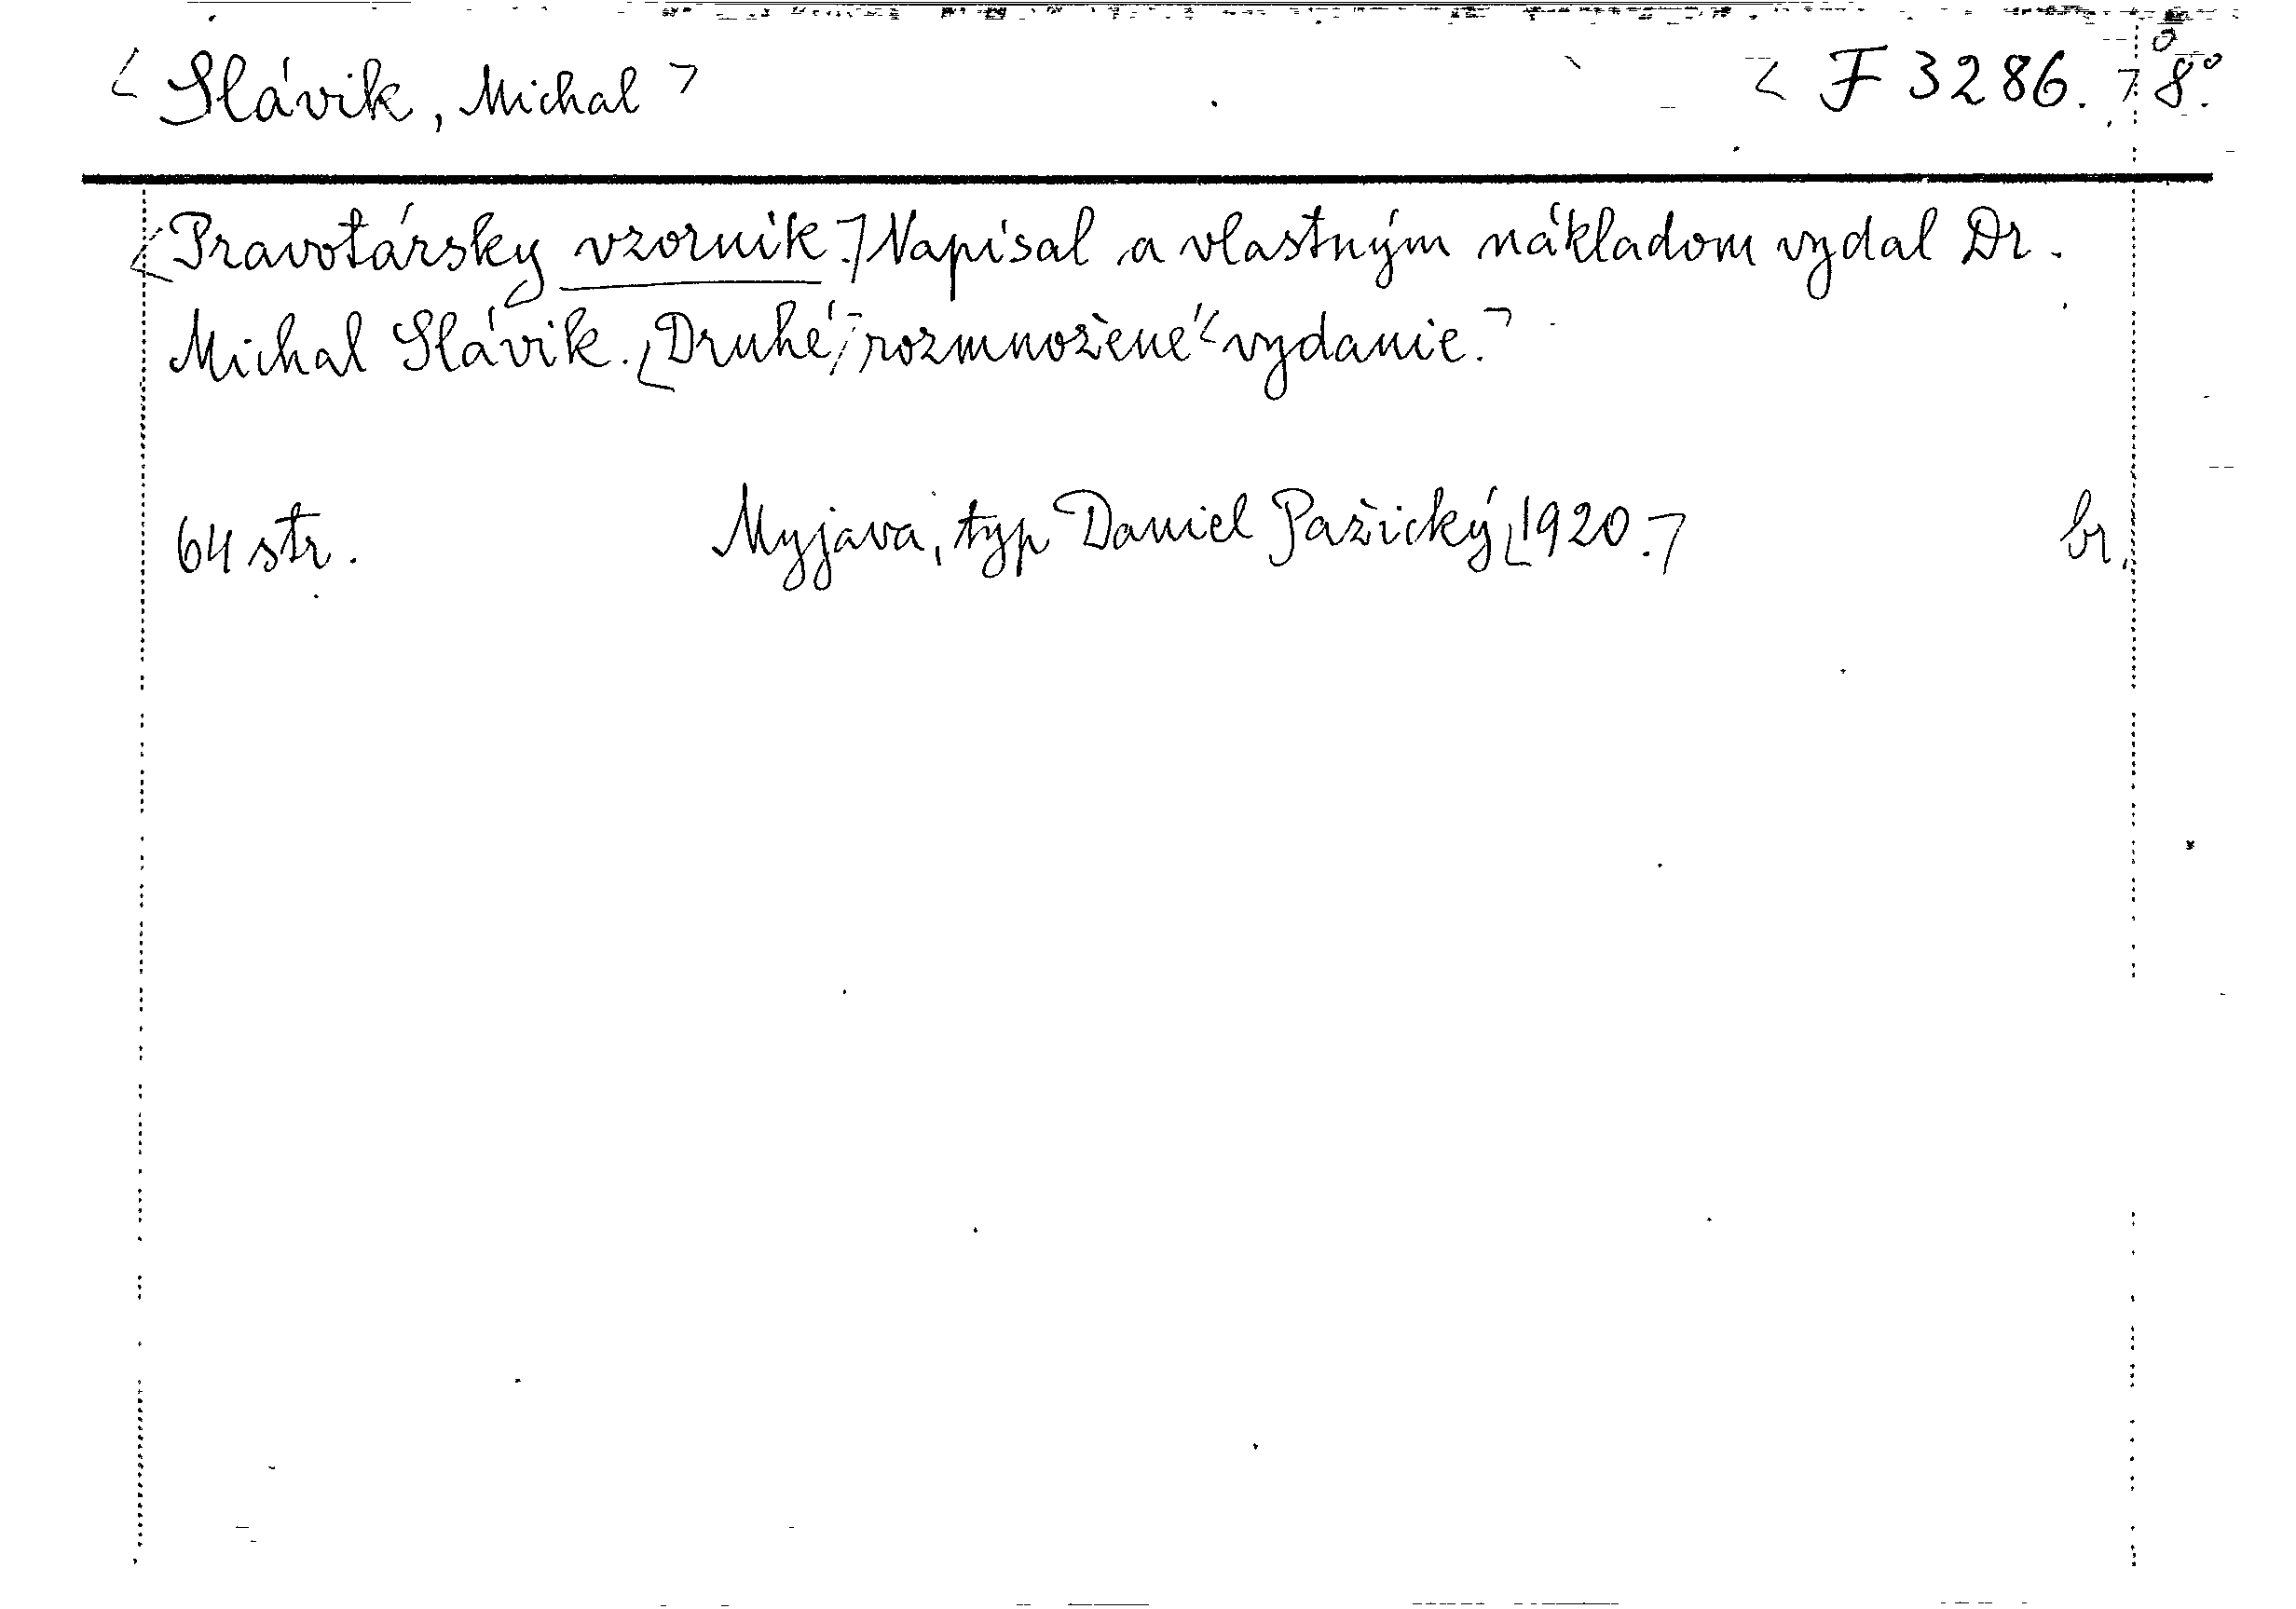 Slávik, Michal F 3286. 8°.
Pravotársky vzorník. Napísal a vlastným nákladom vydal Dr.
Michal Slávik. Druhé, rozmnožené vydanie.
64 str. Myjava, typ Daniel Pažický 1920. br.